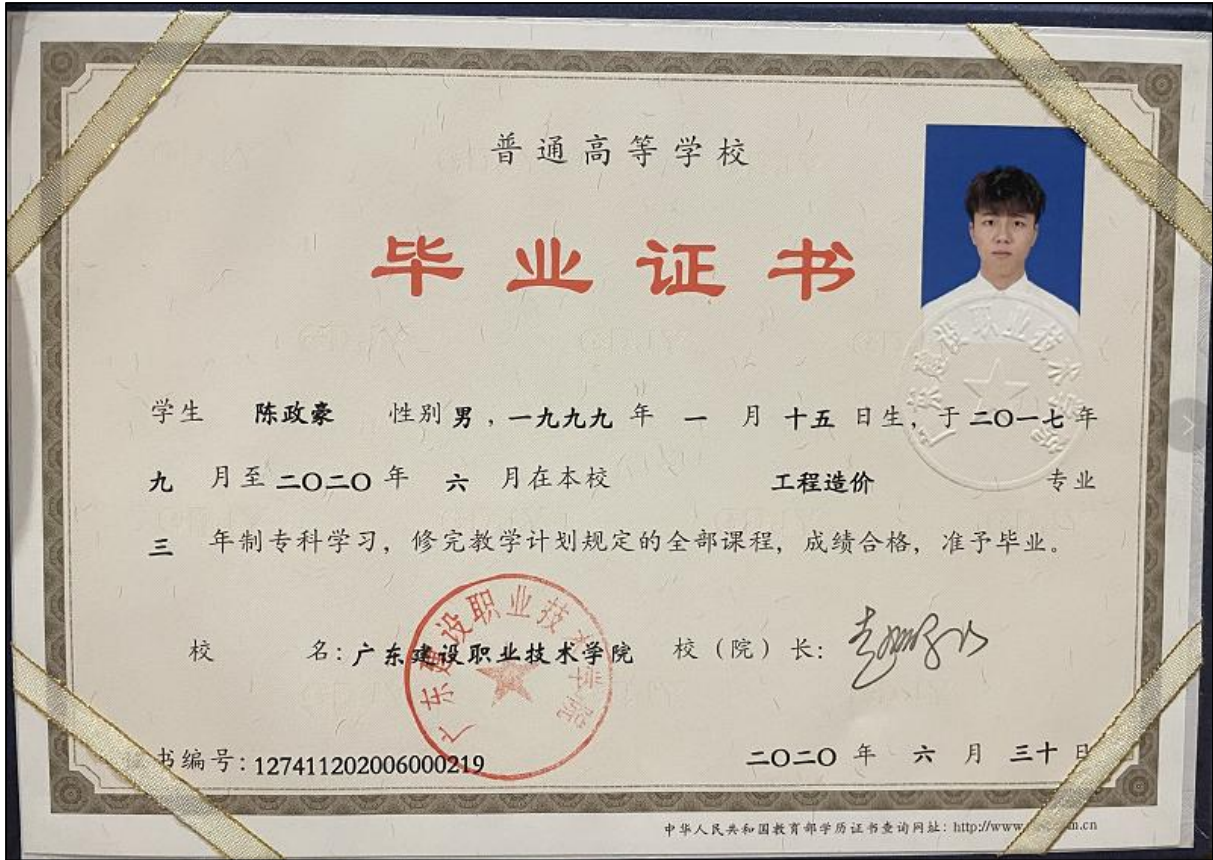 普通高等学校
毕业证书
学生 陈政豪 性别 男 , 一九九九 年 一 月 十五 日生, 于 二〇一七 年
九 月至 二〇二〇 年 六 月在本校 工程造价 专业
三 年制专科学习, 修完教学计划规定的全部课程, 成绩合格, 准予毕业。
校 名: 广东建设职业技术学院 校(院)长:
书编号: 127411202006000219 二〇二〇 年 六 月 三十 日
中华人民共和国教育部学历证书查询网址: http://www
广东建设职业技术学院
广东建设职业技术学院